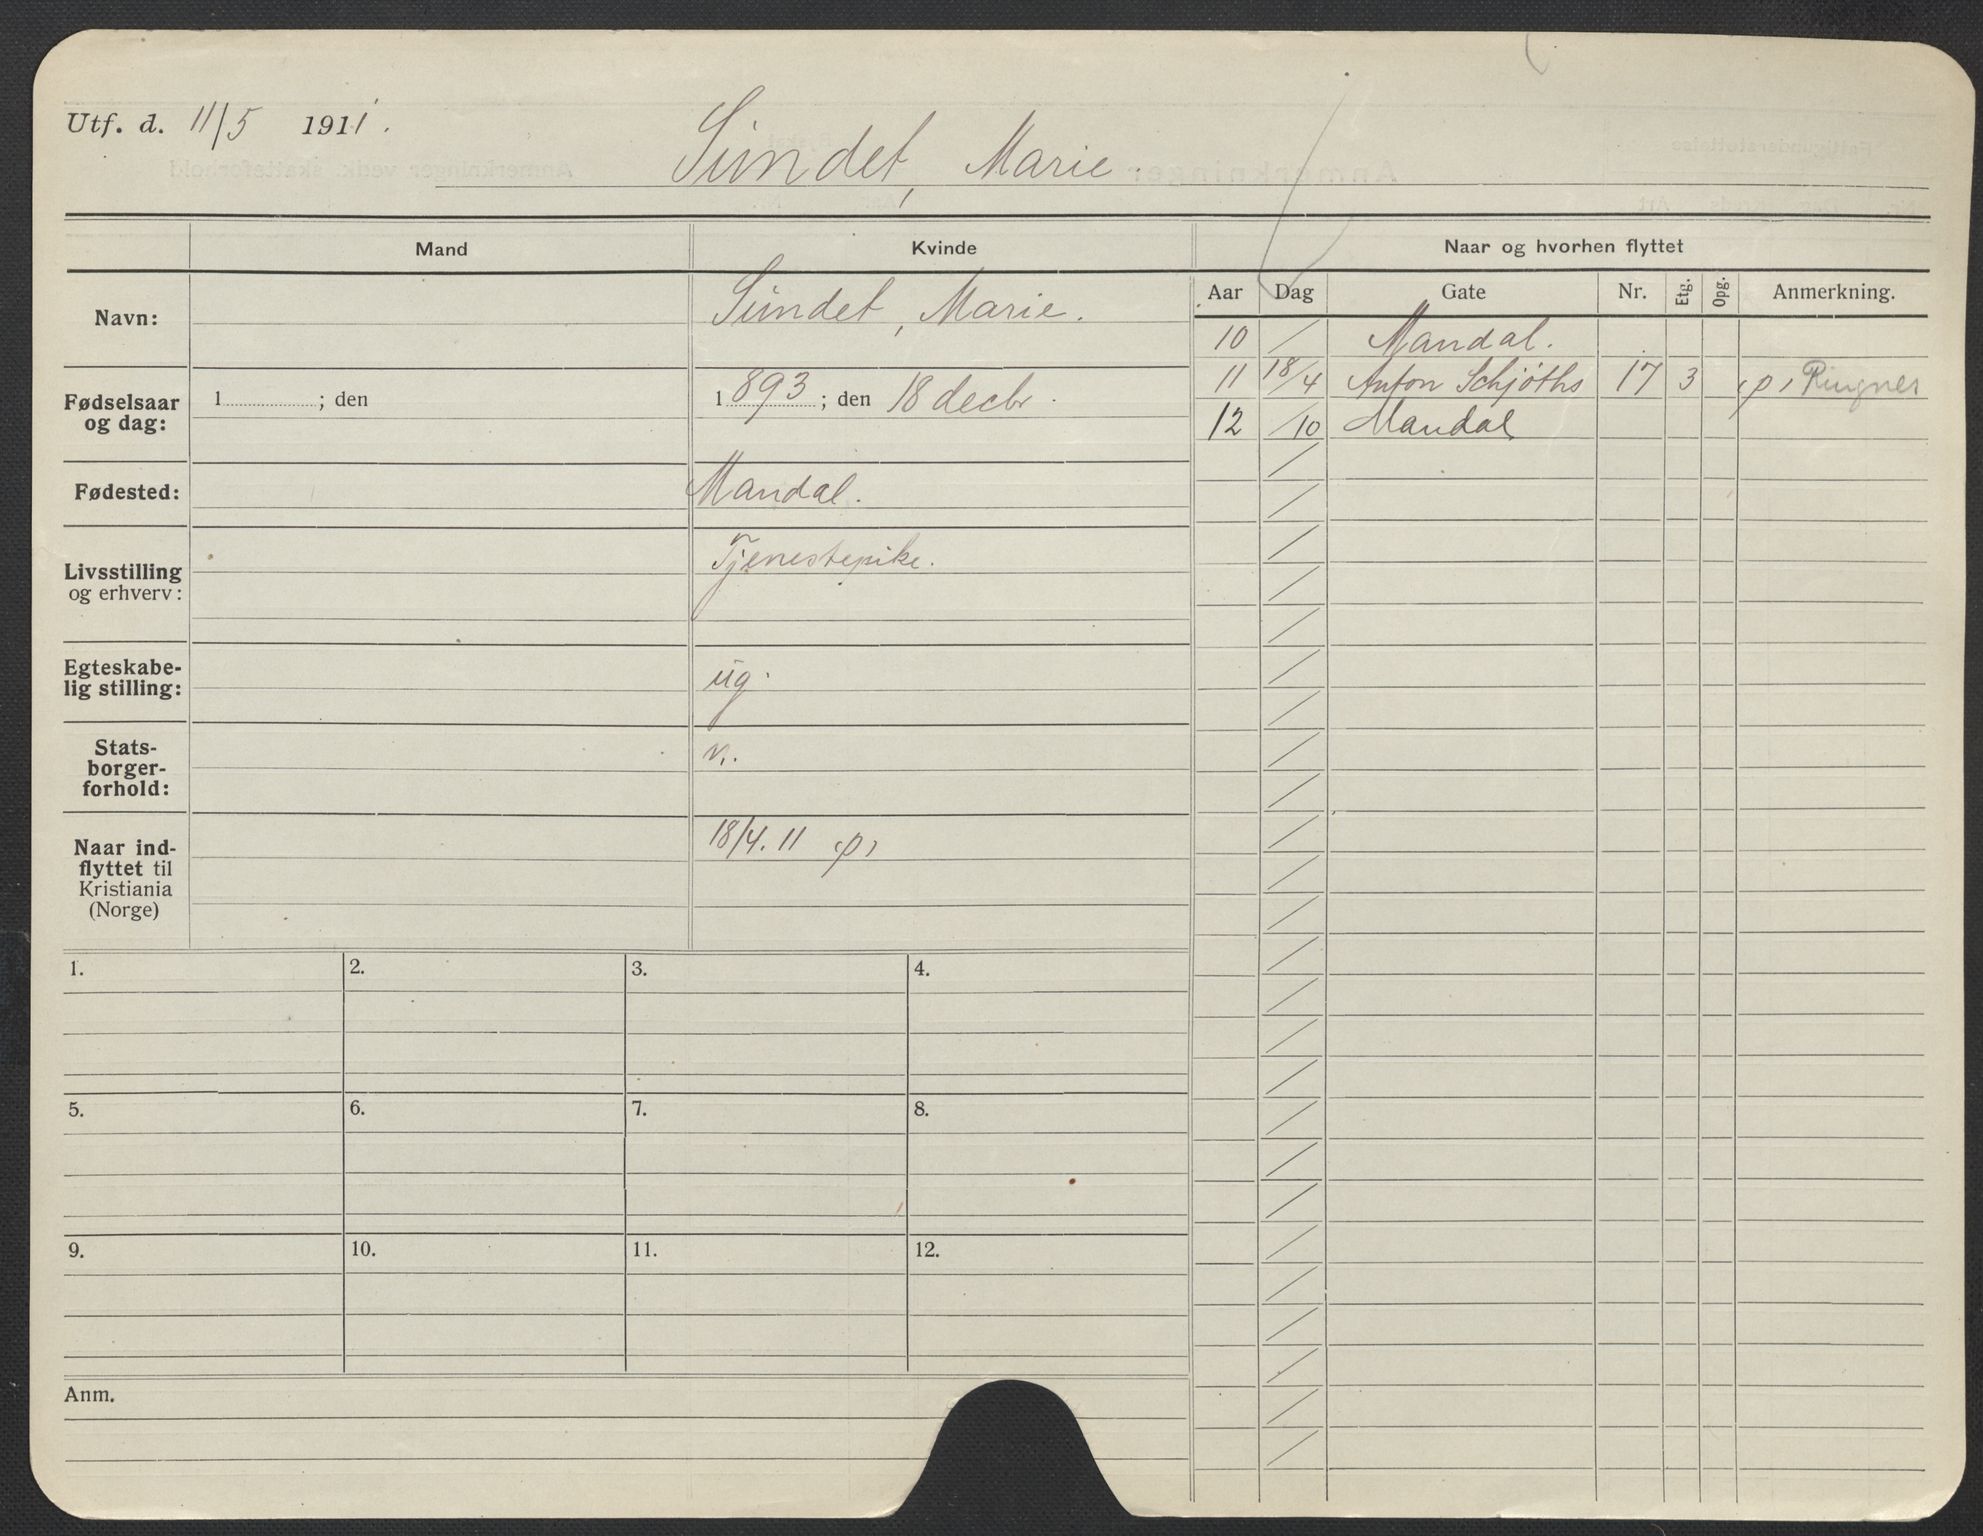 Utf. d. 11/5 1911.
Sundet, Marie.
Mand
Kvinde
Naar og hvorhen flyttet
Aar Dag Gate Nr. Etg. Opg. Anmerkning.
Navn: Sundet, Marie.
Fødselsaar og dag: 1 ; den 1893; den 18 decbr.
Fødested: Mandal.
Livsstilling og erhverv: Tjenestepike.
Egteskabe-
lig stilling: ug.
Stats-
borger-
forhold: n.
Naar ind-
flyttet til
Kristiania
(Norge) 18/4. 11
10 / Mandal.
11 18/4 Anton Schjøths 17 3 Ringnes
12 /10 Mandal
1. 2. 3. 4.
5. 6. 7. 8.
9. 10. 11. 12.
Anm.